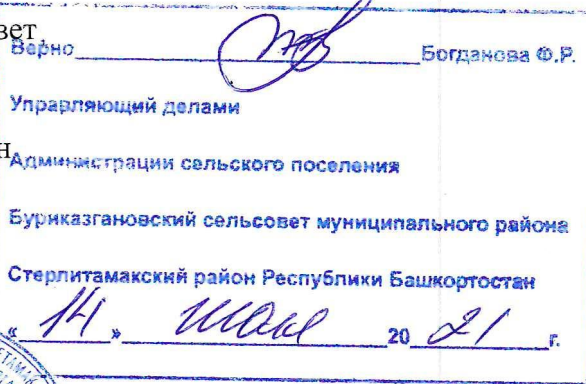 вет
Верно Богданова Ф.Р.
Управляющий делами
н
Администрации сельского поселения
Буриказгановский сельсовет муниципального района
Стерлитамакский район Республики Башкортостан
« 14 » 20 21 г.